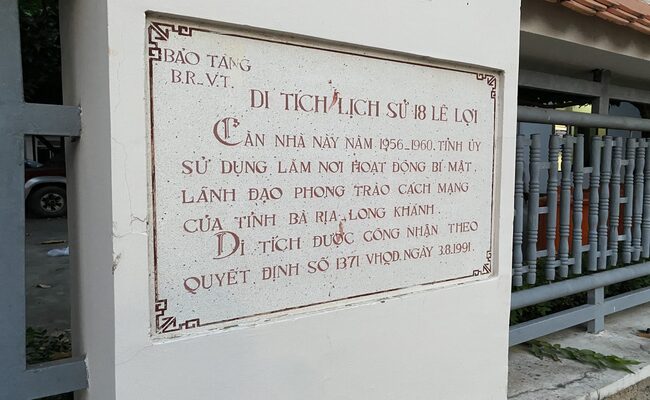 BẢO TÀNG
B.R_V.T.
DI TÍCH LỊCH SỬ 18 LÊ LỢI
CĂN NHÀ NÀY NĂM 1956_1960, TỈNH ỦY
SỬ DỤNG LÀM NƠI HOẠT ĐỘNG BÍ MẬT,
LÃNH ĐẠO PHONG TRÀO CÁCH MẠNG
CỦA TỈNH BÀ RỊA_LONG KHÁNH.
DI TÍCH ĐƯỢC CÔNG NHẬN THEO
QUYẾT ĐỊNH SỐ 1371 VHQĐ. NGÀY 3.8.1991.